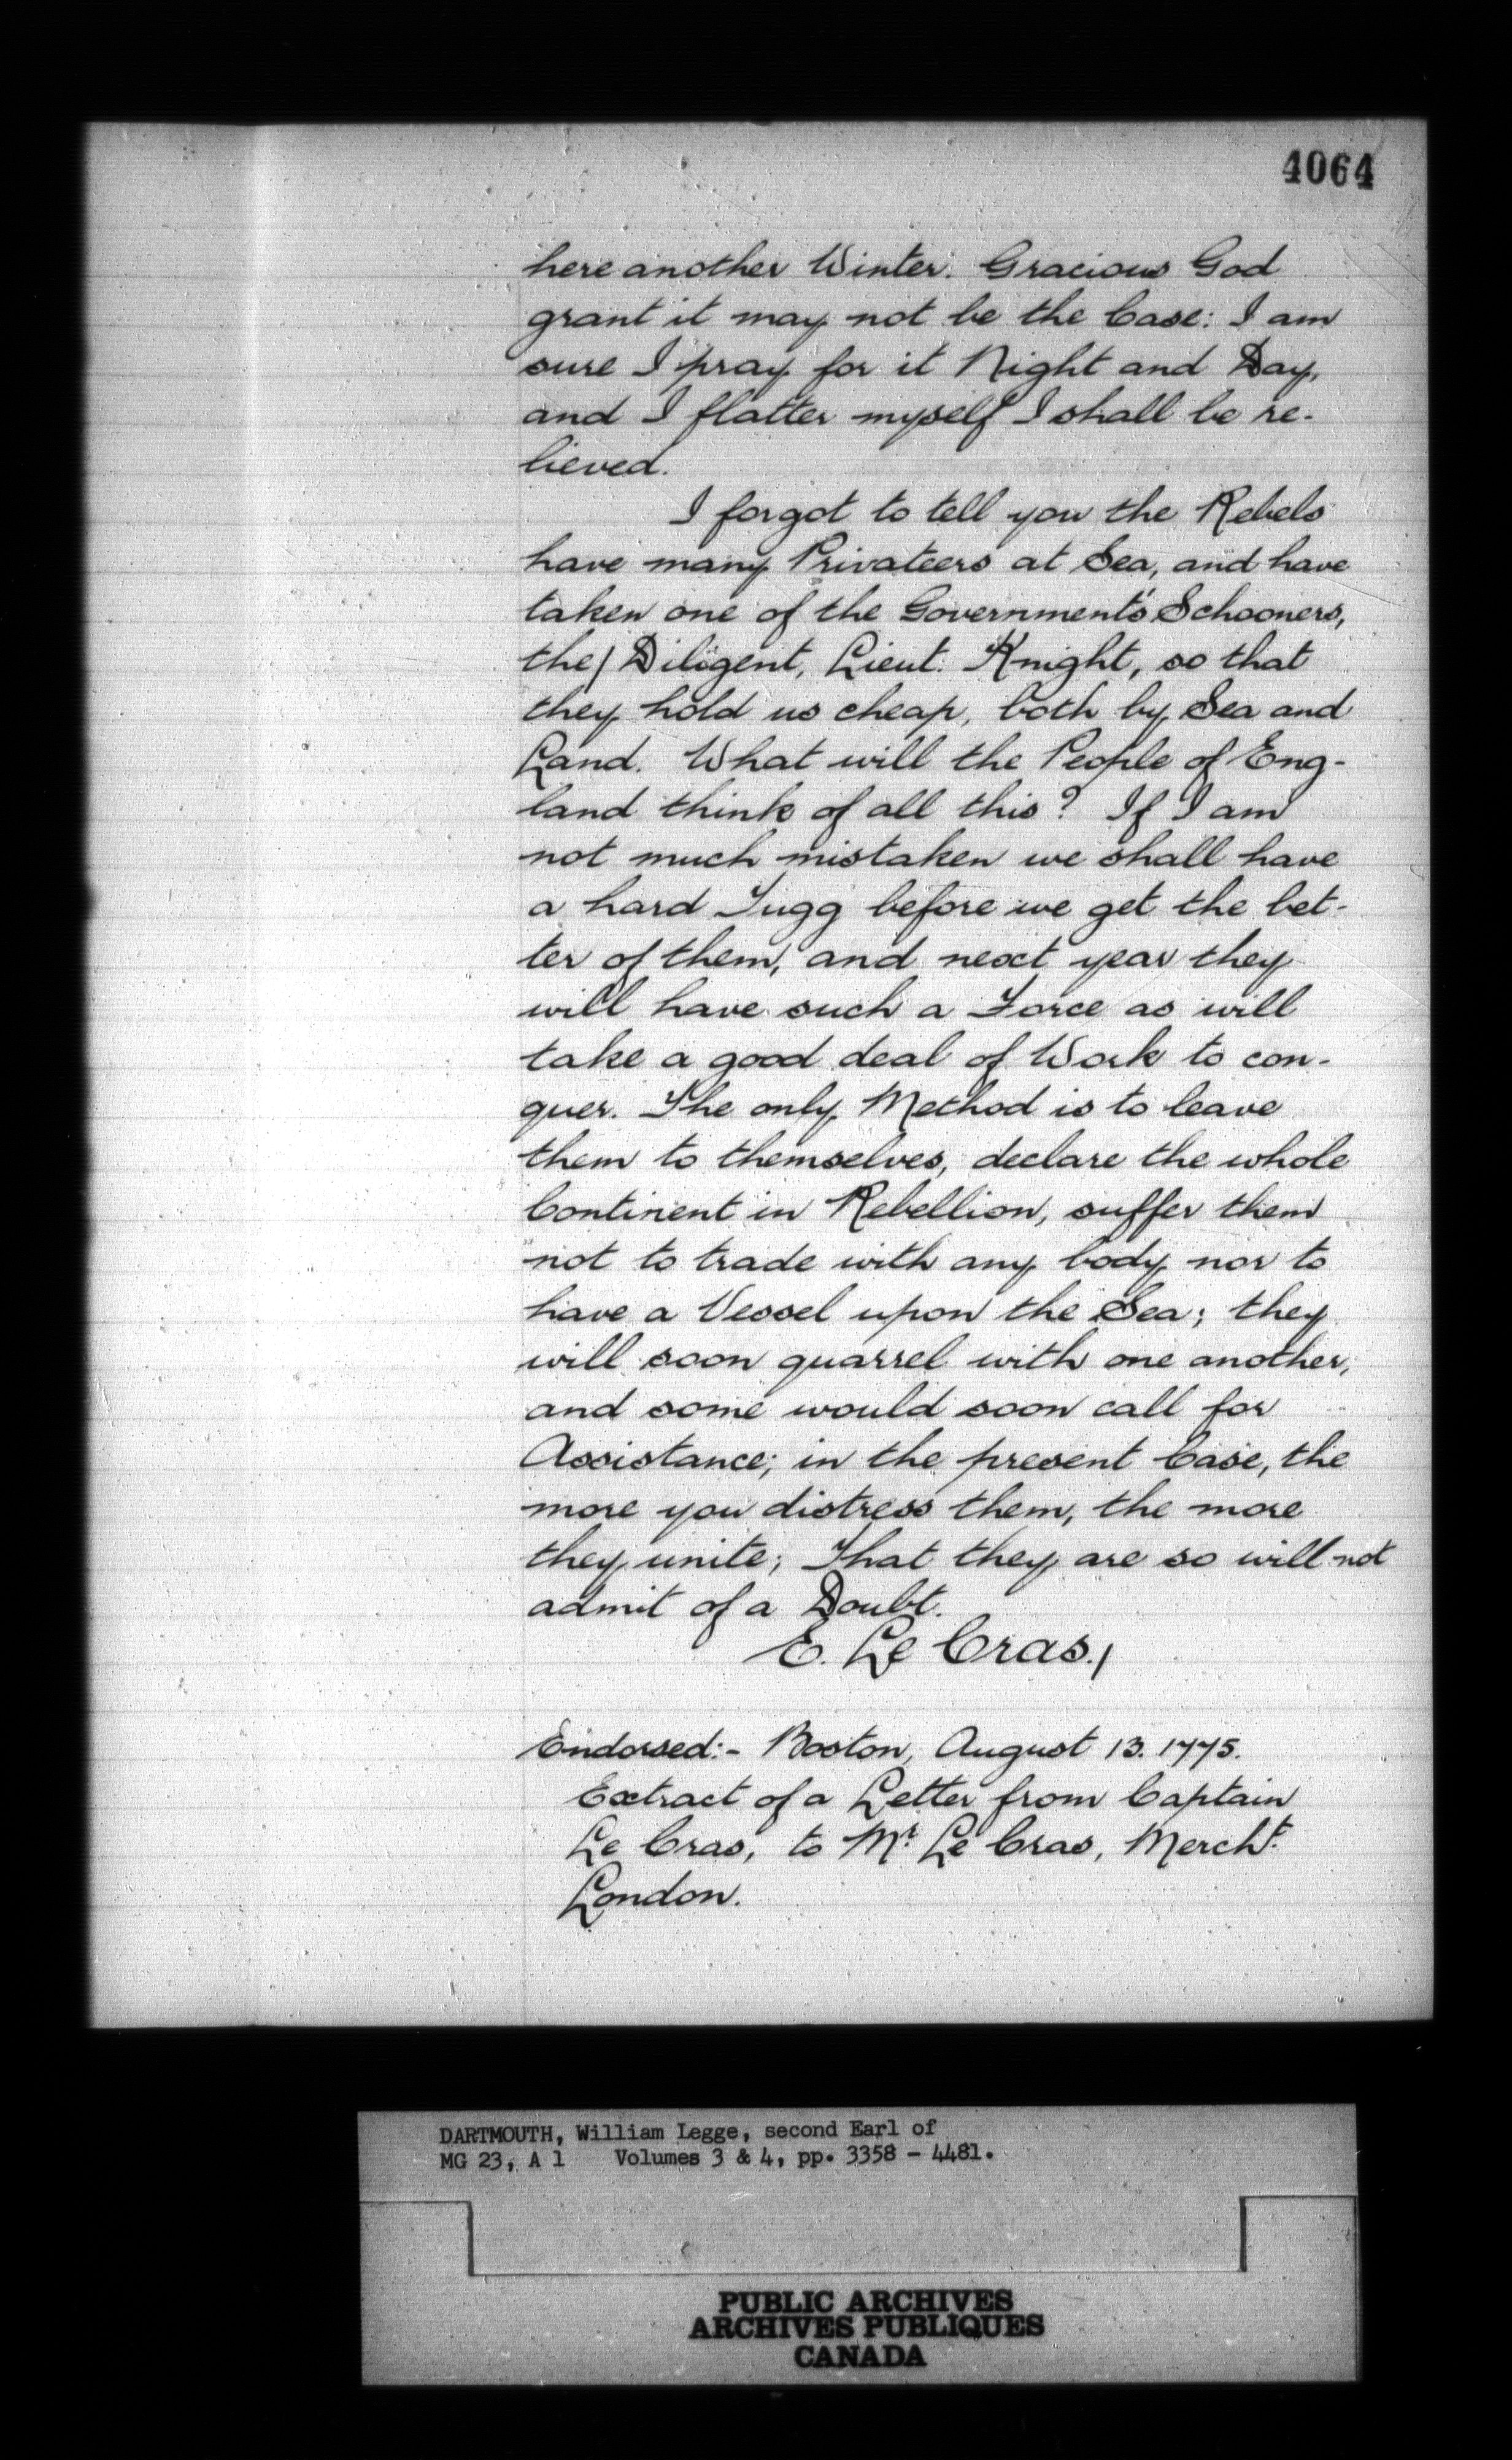 4064
here another Winter. Gracious God
grant it may not be the Case: I am
sure I pray for it Night and Day,
and I flatter myself I shall be re-
lieved.
I forgot to tell you the Rebels
have many Privateers at Sea, and have
taken one of the Government's Schooners,
the/ Diligent, Lieut: Knight, so that
they hold us cheap, both by Sea and
Land. What will the People of Eng-
land think of all this? If I am
not much mistaken we shall have
a hard Tugg before we get the bet-
ter of them, and next year they
will have such a Force as will
take a good deal of Work to con-
quer. The only Method is to leave
them to themselves, declare the whole
Continent in Rebellion, suffer them
not to trade with any body nor to
have a Vessel upon the Sea; they
will soon quarrel with one another,
and some would soon call for
Assistance; in the present Case, the
more you distress them, the more
they unite; That they are so will not
admit of a Doubt.
E. Le Cras./
Endorsed:- Boston, August 13. 1775.
Extract of a Letter from Captain
Le Cras, to Mr. Le Cras, Mercht.
London.
DARTMOUTH, William Legge, second Earl of
MG 23, A 1 Volumes 3 & 4, pp. 3358 - 4481.
PUBLIC ARCHIVES
ARCHIVES PUBLIQUES
CANADA